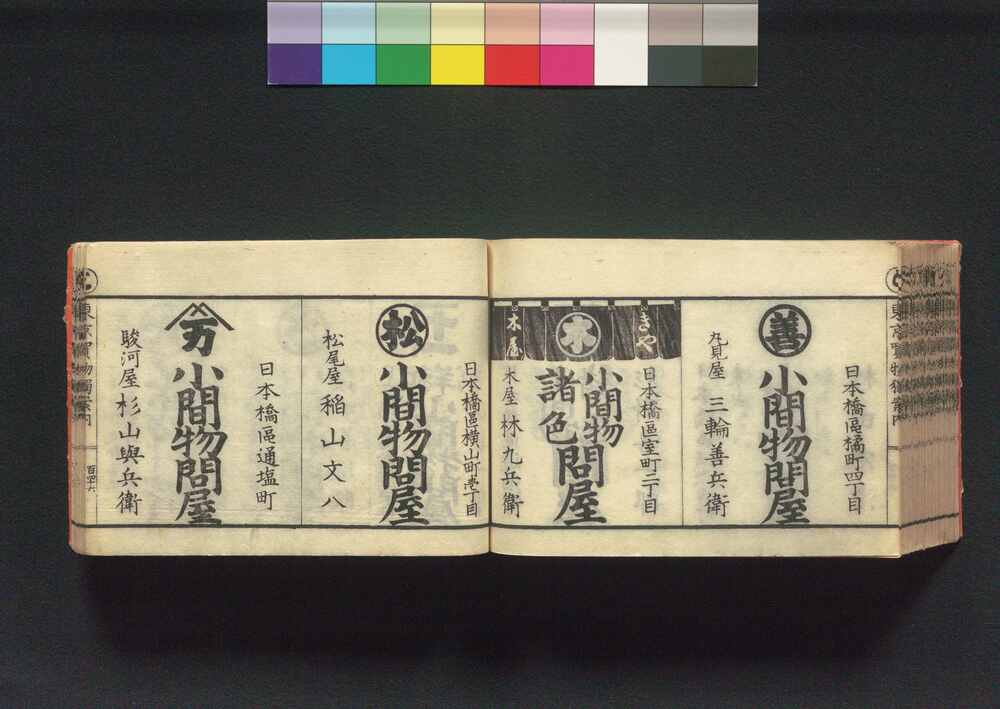 善
日本橋區橘町四丁目
小間物問屋
丸見屋 三輪善兵衛
きや
木
木屋
日本橋區室町二丁目
小間物
諸色問屋
木屋 林九兵衛
日本橋區横山町壱丁目
松
小間物問屋
松尾屋 稲山文八
日本橋區通塩町
万
小間物問屋
駿河屋 杉山與兵衛
百四六